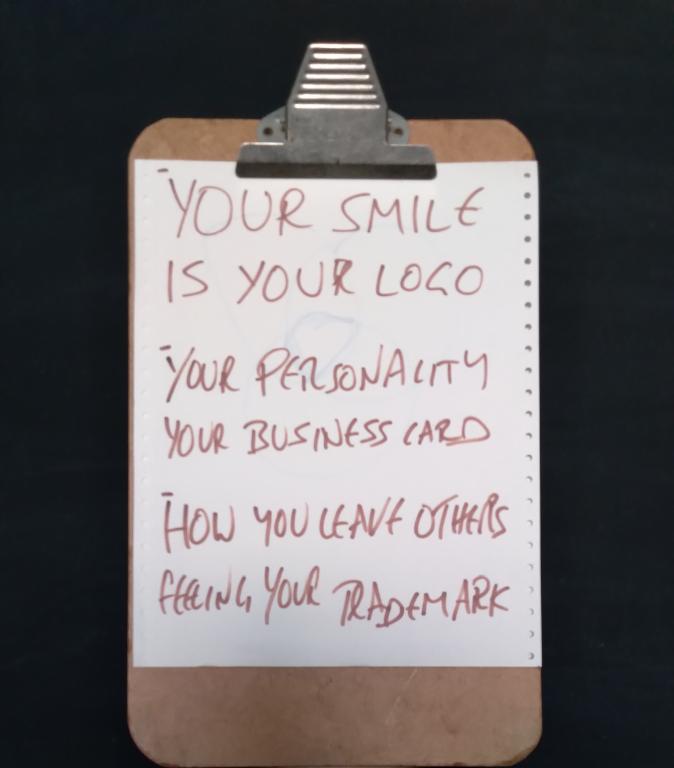 - YOUR SMILE
IS YOUR LOGO
- YOUR PERSONALITY
YOUR BUSINESS CARD
- HOW YOU LEAVE OTHERS
FEELING YOUR TRADEMARK